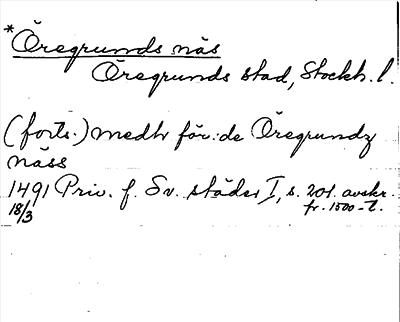 *Öregrunds näs
Öregrunds stad, Stockh. l.
(forts.) medh för:de Öregrundz
näss
1491 Priv. f. Sv. städer I, s. 201. avskr.
18/3 fr. 1500-t.